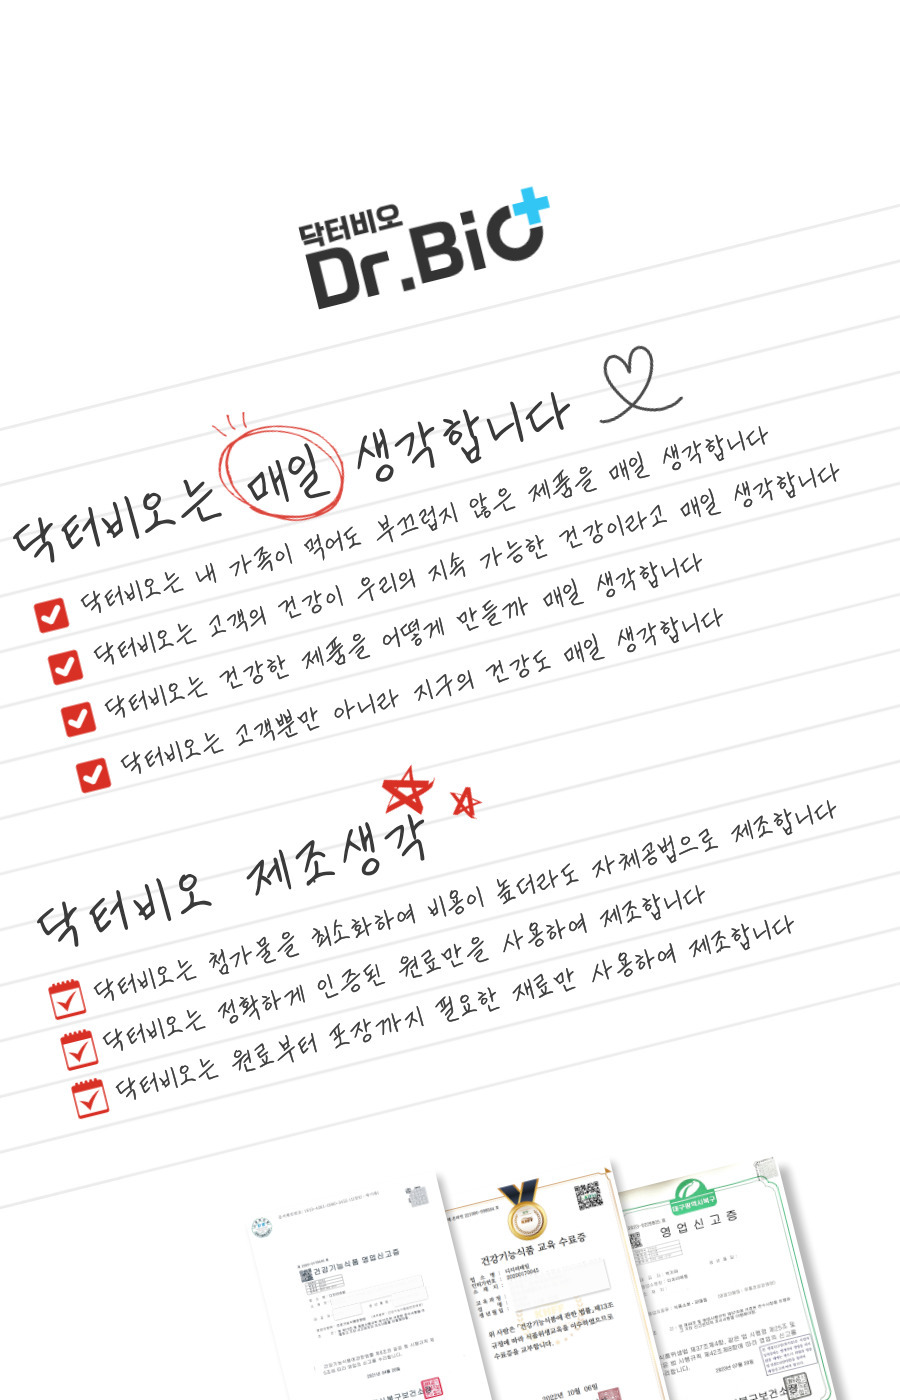 닥터비오
Dr.Bio
닥터비오는 매일 생각합니다
닥터비오는 내 가족이 먹어도 부끄럽지 않은 제품을 매일 생각합니다
닥터비오는 고객의 건강이 우리의 지속 가능한 건강이라고 매일 생각합니다
닥터비오는 건강한 제품을 어떻게 만들까 매일 생각합니다
닥터비오는 고객뿐만 아니라 지구의 건강도 매일 생각합니다
닥터비오 제조생각
닥터비오는 첨가물을 최소화하여 비용이 높더라도 자체공법으로 제조합니다
닥터비오는 정확하게 인증된 원료만을 사용하여 제조합니다
닥터비오는 원료부터 포장까지 필요한 재료만 사용하여 제조합니다
건강기능식품 영업신고증
건강기능식품 교육 수료증
위 사람은 「건강기능식품에 관한 법률」제13조
규정에 따라 식품위생교육을 이수하였으므로
수료증을 교부합니다.
2022년 10월 06일
대구광역시북구
영업신고증